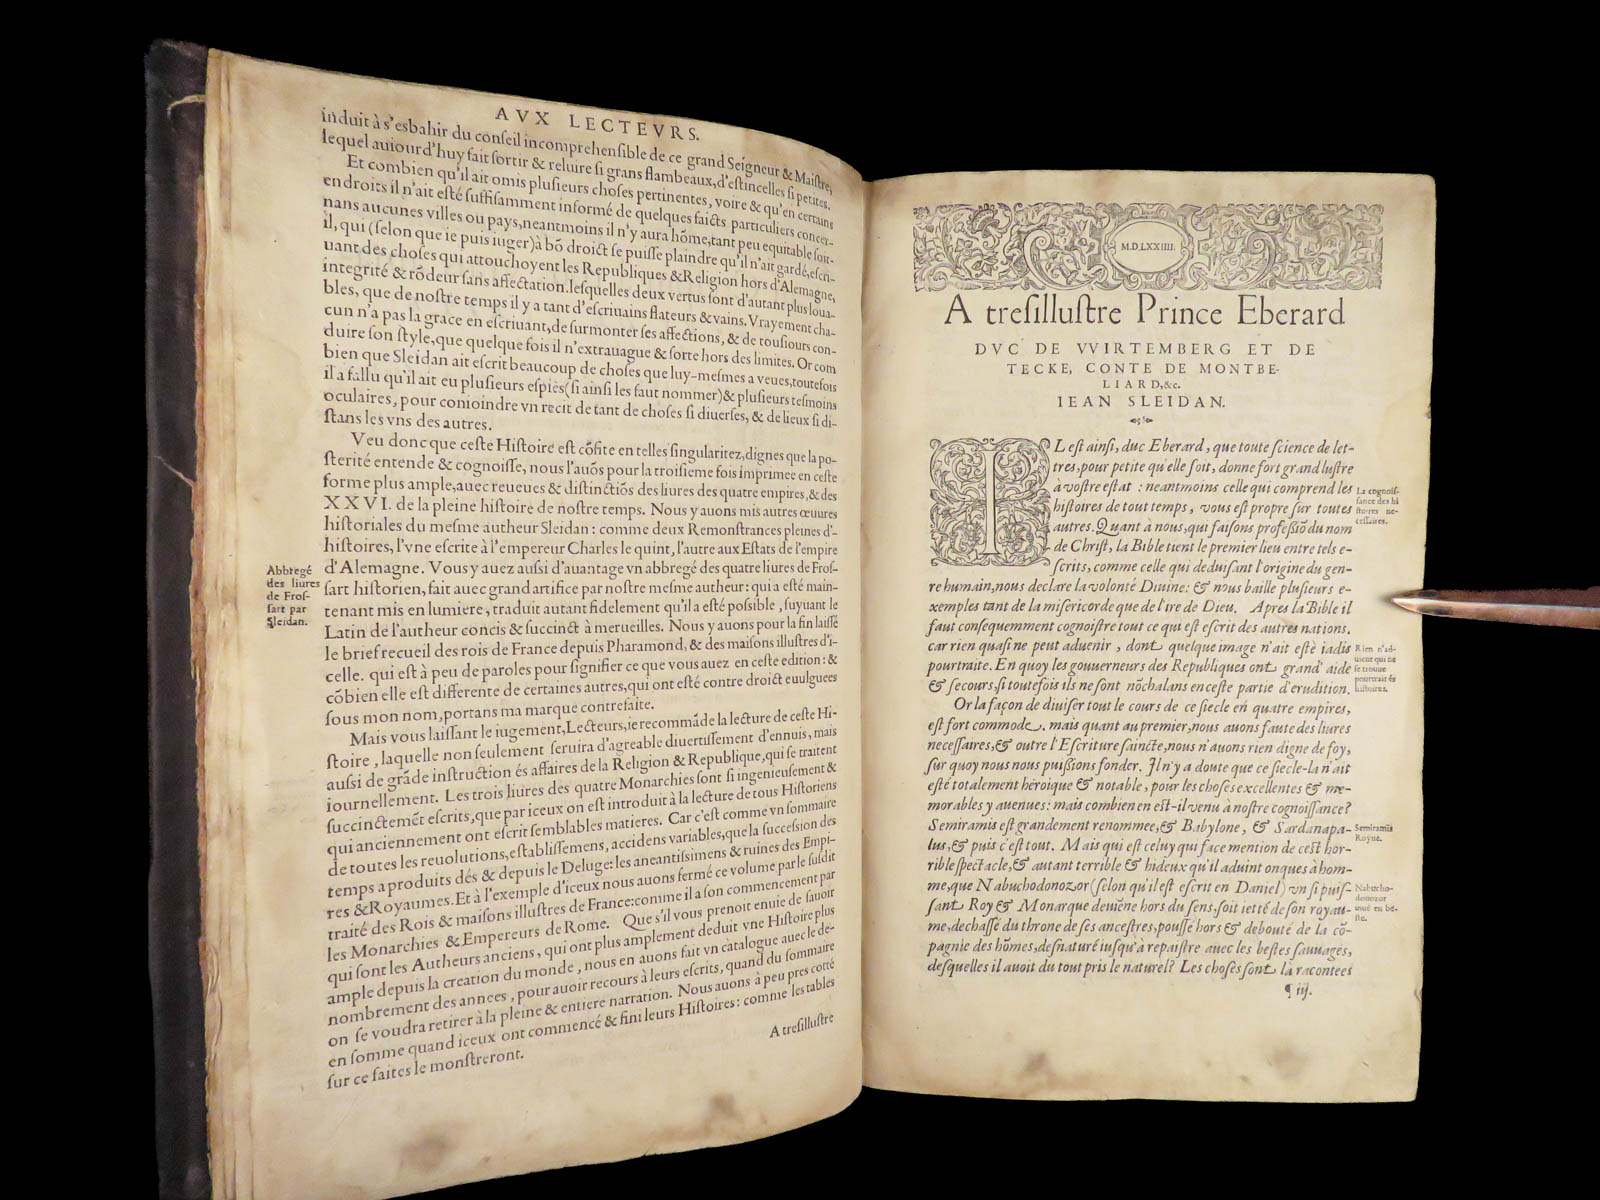 AVX LECTEVRS.
induit à s'esbahir du conseil incomprehensible de ce grand Seigneur & Maistre,
lequel auiourd'huy fait sortir & reluire si grans flambeaux, d'estincelles si petites.
Et combien qu'il ait omis plusieurs choses pertinentes, voire & qu'en certains
endroits il n'ait esté suffisamment informé de quelques faicts particuliers concer-
nans aucunes villes ou pays, neantmoins il n'y aura hõme, tant peu equitable soit-
il, qui (selon que ie puis iuger) à bõ droict se puisse plaindre qu'il n'ait gardé, escri-
uant des choses qui attouchoyent les Republiques & Religion hors d'Alemagne,
integrité & rõdeur sans affectation. lesquelles deux vertus sont d'autant plus loua-
bles, que de nostre temps il y a tant d'escriuains flateurs & vains. Vrayement cha-
cun n'a pas la grace en escriuant, de surmonter ses affections, & de tousiours con-
duire son style, que quelque fois il n'extrauague & sorte hors des limites. Or com
bien que Sleidan ait escrit beaucoup de choses que luy-mesmes a veues, toutefois
il a fallu qu'il ait eu plusieurs espies (si ainsi les faut nommer) & plusieurs tesmoins
oculaires, pour conioindre vn recit de tant de choses si diuerses, & de lieux si di-
stans les vns des autres.
Veu donc que ceste Histoire est cõfite en telles singularitez, dignes que la po-
sterité entende & cognoisse, nous l'auõs pour la troisieme fois imprimee en ceste
forme plus ample, auec reueues & distinctiõs des liures des quatre empires, & des
XXVI. de la pleine histoire de nostre temps. Nous y auons mis autres œuures
historiales du mesme autheur Sleidan: comme deux Remonstrances pleines d'-
histoires, l'vne escrite à l'empereur Charles le quint, l'autre aux Estats de l'empire
d'Alemagne. Vous y auez aussi d'auantage vn abbregé des quatre liures de Fros-
sart historien, fait auec grand artifice par nostre mesme autheur: qui a esté main-
tenant mis en lumiere, traduit autant fidelement qu'il a esté possible, suyuant le
Latin de l'autheur concis & succinct à merueilles. Nous y auons pour la fin laissé
le brief recueil des rois de France depuis Pharamond, & des maisons illustres d'i-
celle. qui est à peu de paroles pour signifier ce que vous auez en ceste edition: &
cõbien elle est differente de certaines autres, qui ont esté contre droict euulguees
sous mon nom, portans ma marque contrefaite.
Mais vous laissant le iugement, Lecteurs, ie recommãde la lecture de ceste Hi-
stoire, laquelle non seulement seruira d'agreable diuertissement d'ennuis, mais
aussi de grãde instruction és affaires de la Religion & Republique, qui se traitent
iournellement. Les trois liures des quatre Monarchies sont si ingenieusement &
succinctemẽt escrits, que par iceux on est introduit à la lecture de tous Historiens
qui anciennement ont escrit semblables matieres. Car c'est comme vn sommaire
de toutes les reuolutions, establissemens, accidens variables, que la succession des
temps a produits dés & depuis le Deluge: les aneantissimens & ruines des Empi-
res & Royaumes. Et à l'exemple d'iceux nous auons fermé ce volume par le susdit
traité des Rois & maisons illustres de France: comme il a son commencement par
les Monarchies & Empereurs de Rome. Que s'il vous prenoit enuie de sauoir
qui sont les Autheurs anciens, qui ont plus amplement deduit vne Histoire plus
ample depuis la creation du monde, nous en auons fait vn catalogue auec le de-
nombrement des annees, pour auoir recours à leurs escrits, quand du sommaire
on se voudra retirer à la pleine & entiere narration. Nous auons à peu pres cotté
en somme quand iceux ont commencé & fini leurs Histoires: comme les tables
sur ce faites le monstreront.
A tresillustre
Abbregé
des liures
de Fros-
sart par
Sleidan.
M.D.LXXIIII.
A tresillustre Prince Eberard
DVC DE VVIRTEMBERG ET DE
TECKE, CONTE DE MONTBE-
LIARD, &c.
IEAN SLEIDAN.
IL est ainsi, duc Eberard, que toute science de let-
tres, pour petite qu'elle soit, donne fort grand lustre
à vostre estat: neantmoins celle qui comprend les
histoires de tout temps, vous est propre sur toutes
autres. Quant à nous, qui faisons professiõ du nom
de Christ, la Bible tient le premier lieu entre tels e-
scrits, comme celle qui deduisant l'origine du gen-
re humain, nous declare la volonté Diuine: & nous baille plusieurs e-
xemples tant de la misericorde que de l'ire de Dieu. Apres la Bible il
faut consequemment cognoistre tout ce qui est escrit des autres nations.
car rien quasi ne peut aduenir, dont quelque image n'ait esté iadis
pourtraite. En quoy les gouuerneurs des Republiques ont grand' aide
& secours, si toutefois ils ne sont nõchalans en ceste partie d'erudition.
Or la façon de diuiser tout le cours de ce siecle en quatre empires,
est fort commode. mais quant au premier, nous auons faute des liures
necessaires, & outre l'Escriture saincte, nous n'auons rien digne de foy,
sur quoy nous nous puissions fonder. Il n'y a doute que ce siecle-la n'ait
esté totalement héroique & notable, pour les choses excellentes & me-
morables y auenues: mais combien en est-il venu à nostre cognoissance?
Semiramis est grandement renommee, & Babylone, & Sardanapa-
lus, & puis c'est tout. Mais qui est celuy qui face mention de cest hor-
rible spectacle, & autant terrible & hideux qu'il aduint onques à hom-
me, que Nabuchodonozor (selon qu'il est escrit en Daniel) vn si puis-
sant Roy & Monarque deuiẽne hors du sens. soit ietté de son royau-
me, dechassé du throne de ses ancestres, poussé hors & debouté de la cõ-
pagnie des hõmes, desnaturé iusqu'à repaistre auec les bestes sauuages,
desquelles il auoit du tout pris le naturel? Les choses sont là racontees
¶ iij.
La cognois-
sance des hi
stoires ne-
cessaires.
Rien n'ad-
uient qui ne
se trouue
pourtrait és
histoires.
Semiramis
Royne.
Nabucho-
donozor
mué en be-
ste.